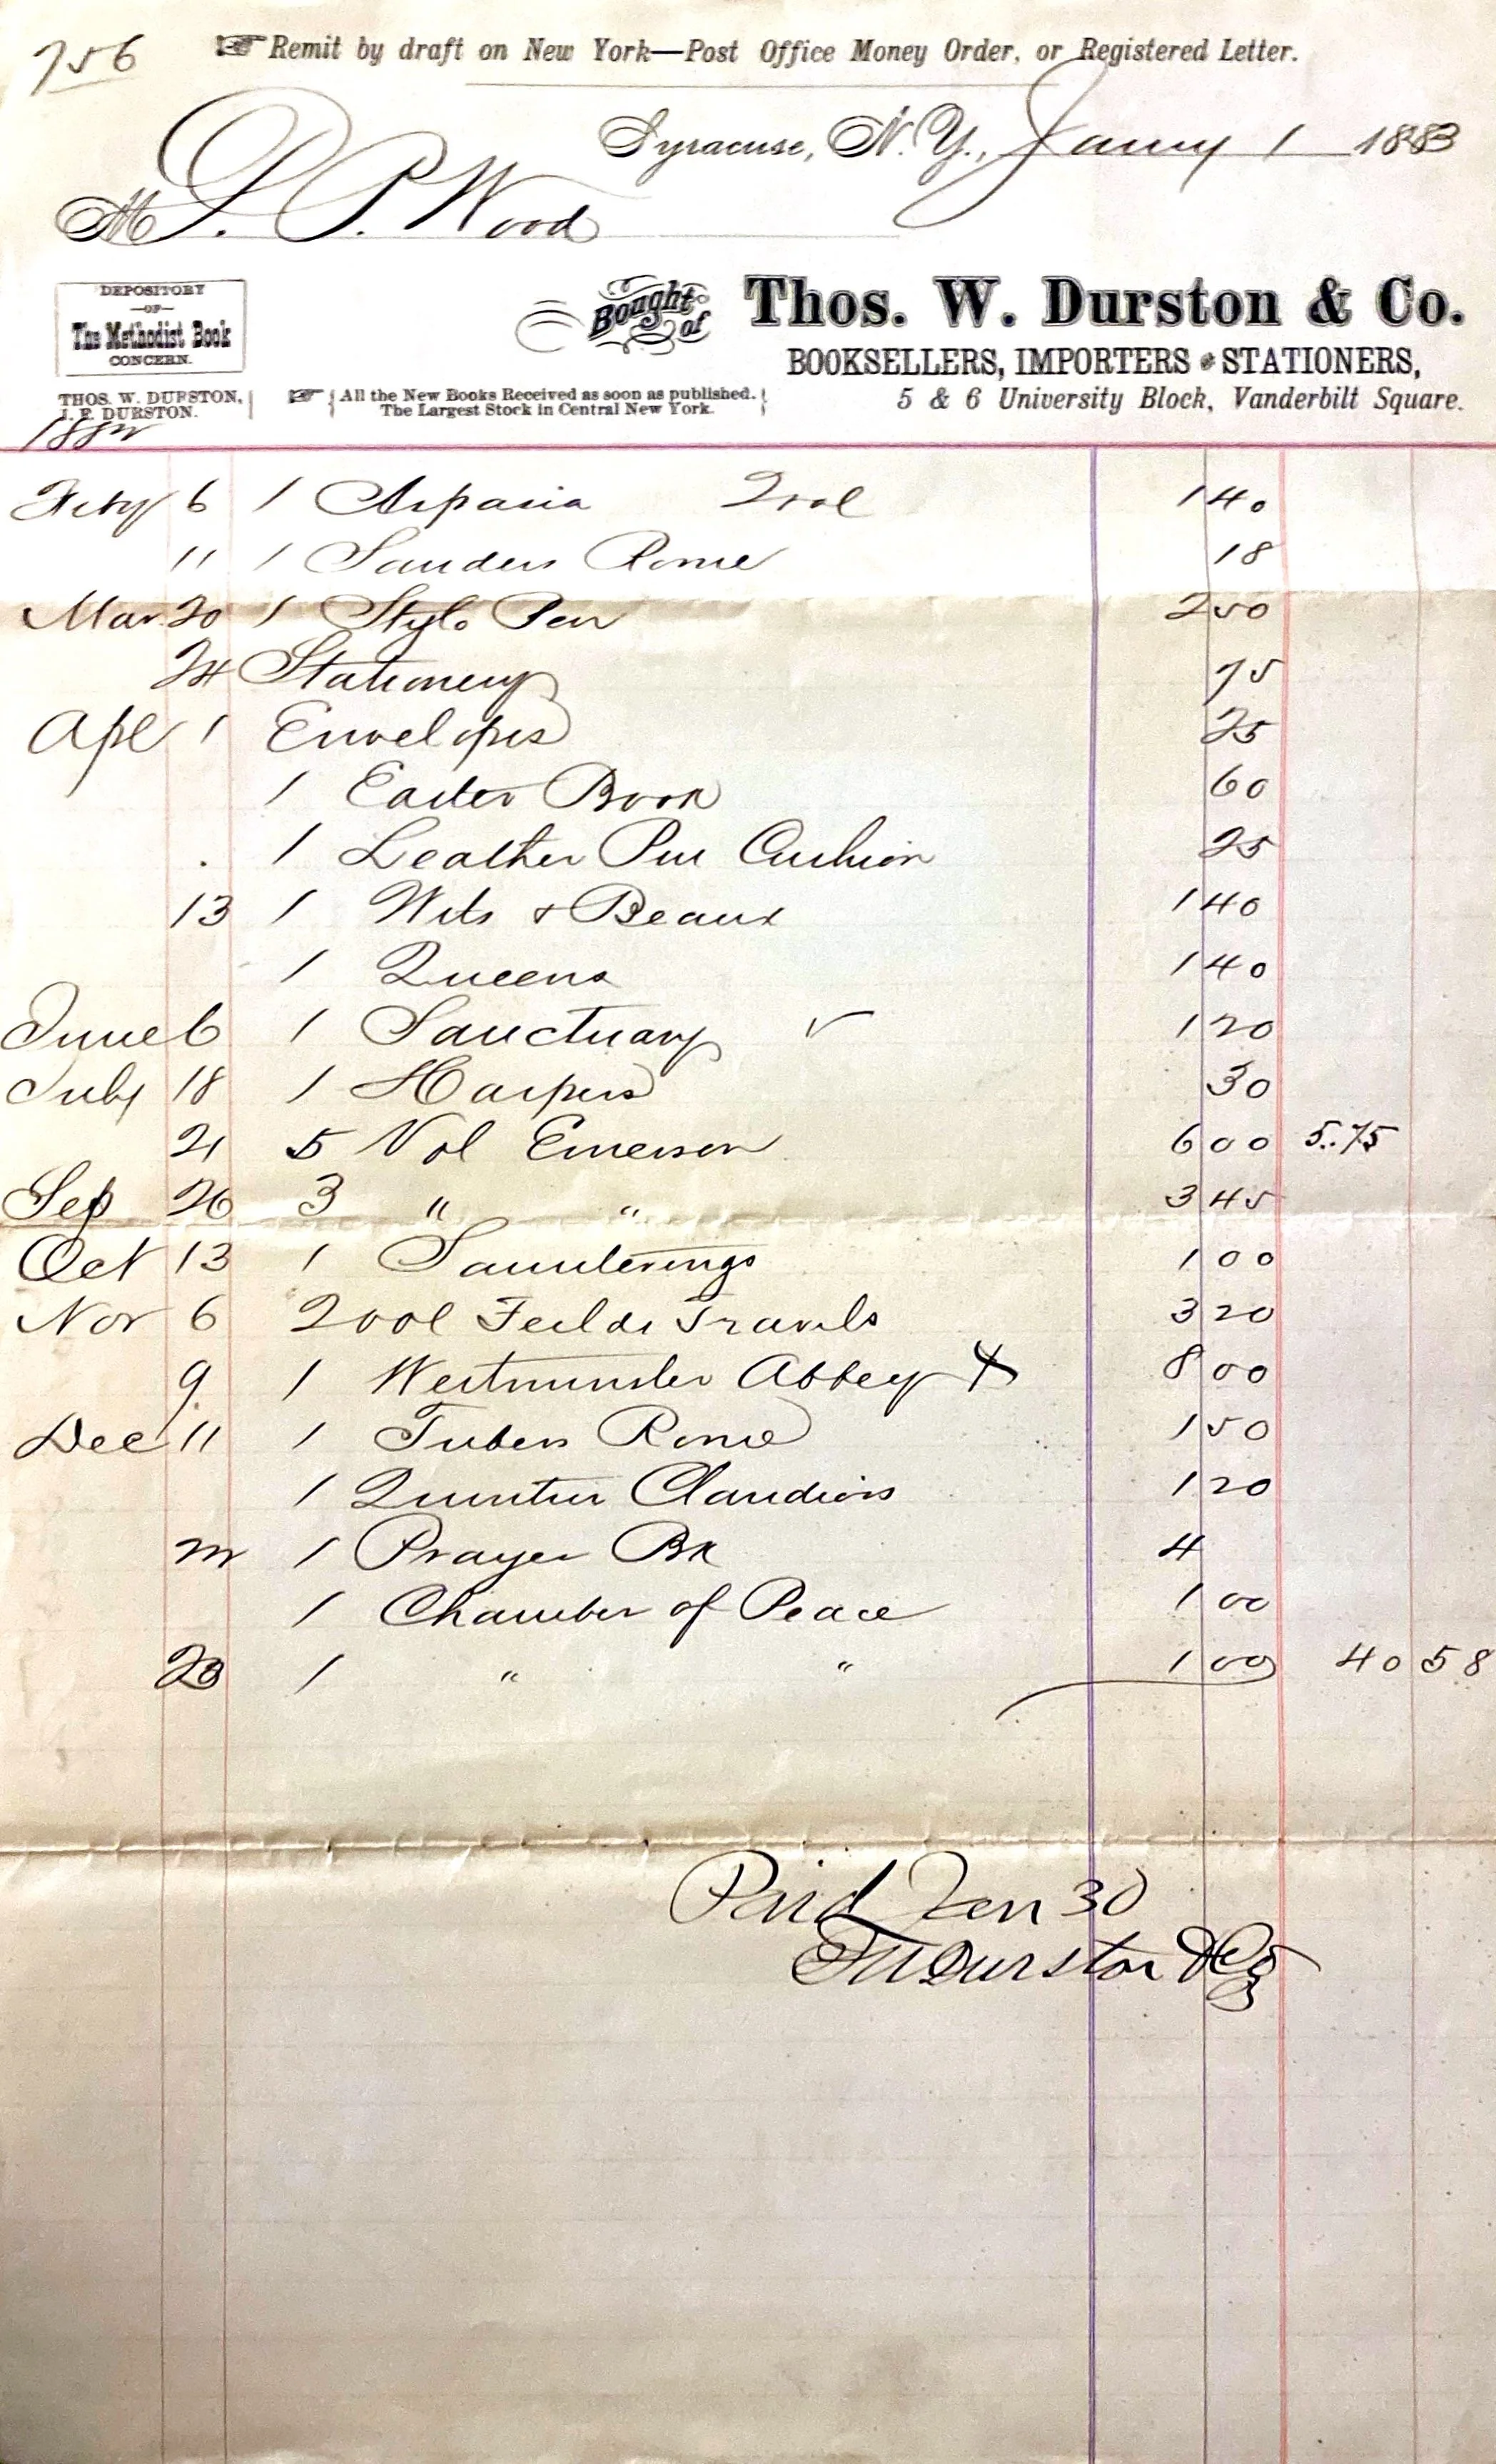 756
Remit by draft on New York—Post Office Money Order, or Registered Letter.
Syracuse, N. Y., Jany 1 1883
M P. Wood
DEPOSITORY
—OF—
The Methodist Book
CONCERN.
Bought of
Thos. W. Durston & Co.
BOOKSELLERS, IMPORTERS & STATIONERS,
THOS. W. DURSTON,
J. E. DURSTON.
All the New Books Received as soon as published.
The Largest Stock in Central New York.
5 & 6 University Block, Vanderbilt Square.
1882
Feby 6 1 Aspasia 2 vol 1 40
11 1 Sanders Rome 18
Mar 20 1 Stylo Pen 2 50
24 Stationery 75
Apl 1 Envelopes 25
1 Easter Book 60
1 Leather Pen Cushion 25
13 1 Wits & Beaux 1 40
1 Queens 1 40
June 6 1 Sanctuary ✓ 1 20
July 18 1 Harpers 30
21 5 Vol Emerson 6 00 5.75
Sep 26 3 " " 3 45
Oct 13 1 Saunterings 1 00
Nov 6 2 vol Feilds Travels 3 20
9 1 Westminster Abbey X 8 00
Dec 11 1 Rome 1 50
1 Quintus Claudius 1 20
1 Prayer Bk 4
1 Chamber of Peace 1 00
23 1 " " 1 00 40 58
Paid Jan 30
T W Durston & Co